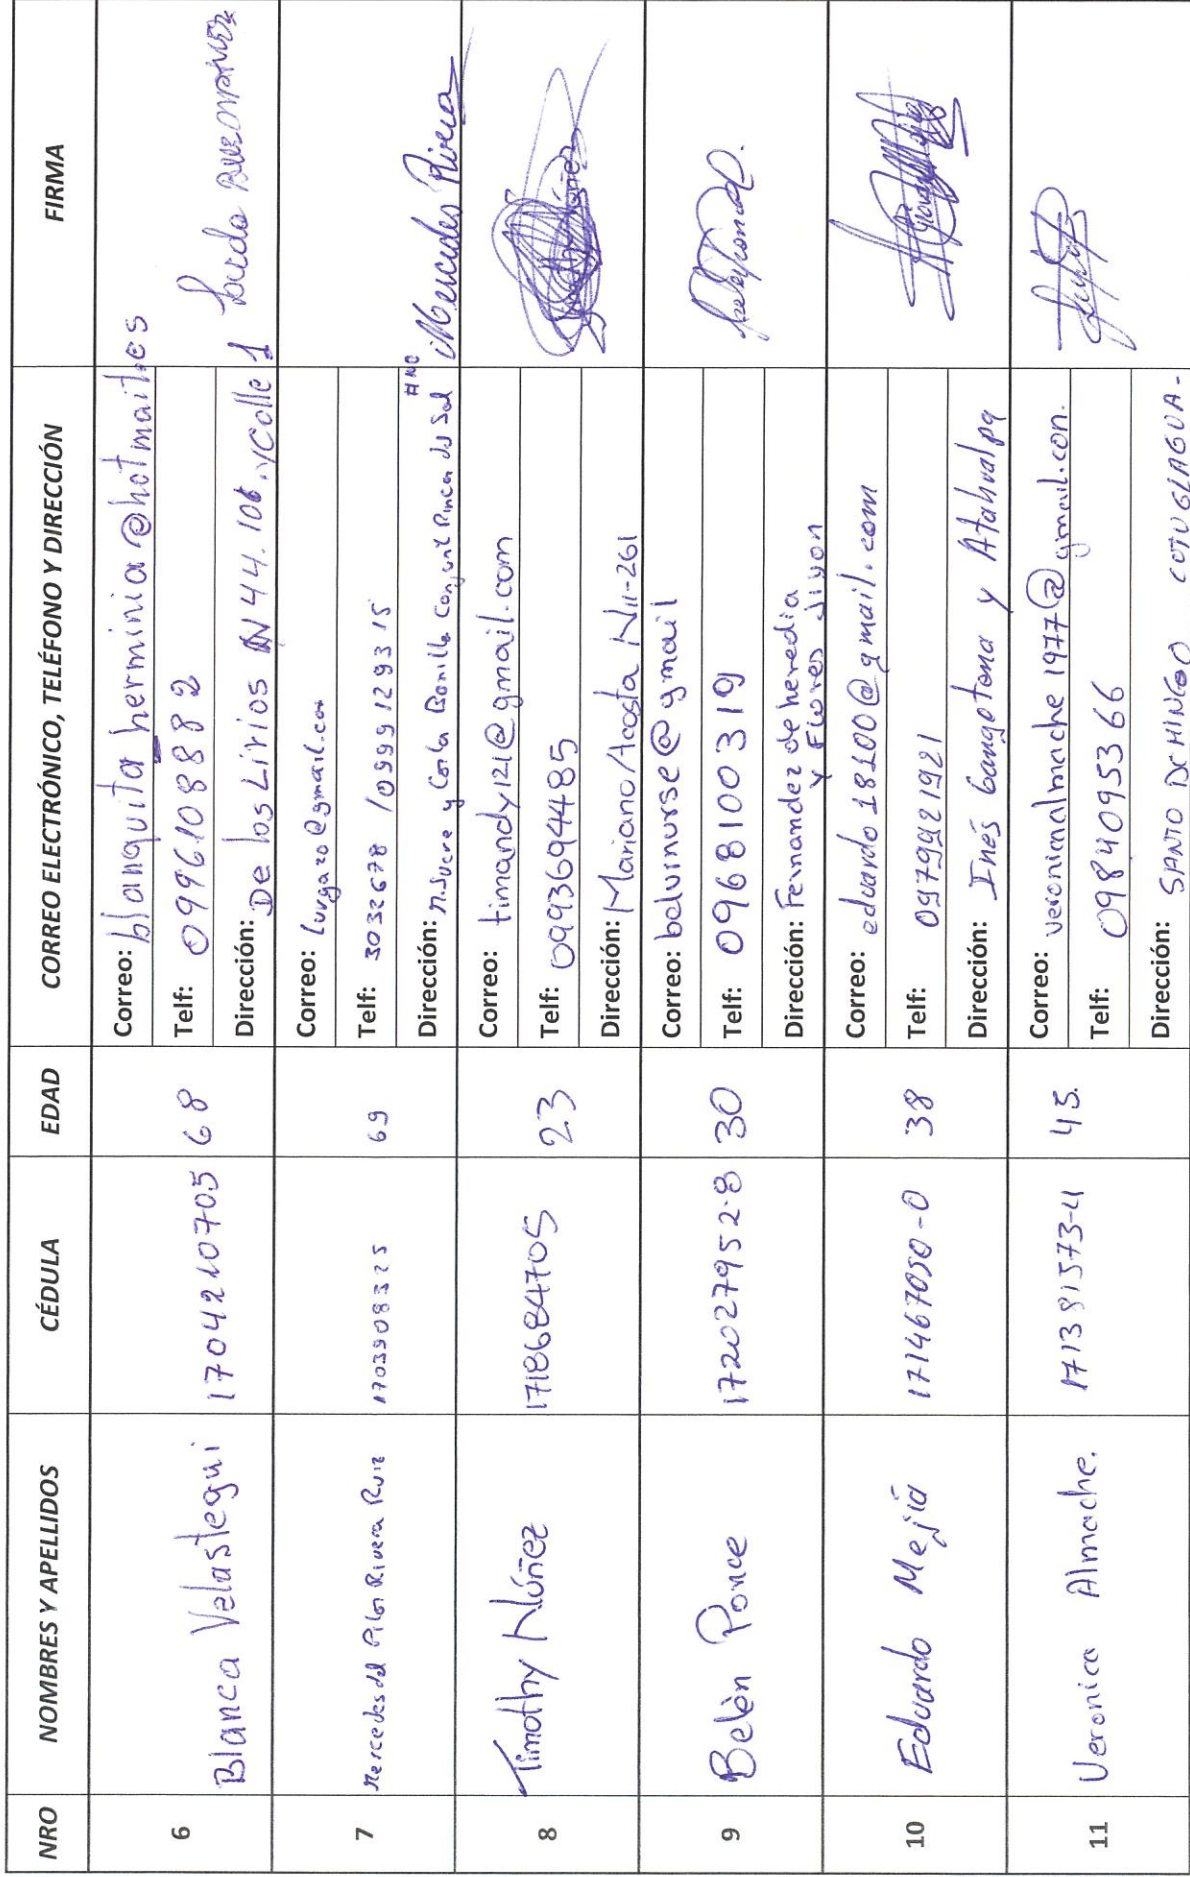 NRO NOMBRES Y APELLIDOS CÉDULA EDAD CORREO ELECTRÓNICO, TELÉFONO Y DIRECCIÓN FIRMA
6 Blanca Velastegui 1704210705 68
Correo: blanquita herminia@hotmail.es
Telf: 0996108882
Dirección: De los Lirios N44.106.y Calle 1
7 Mercedes del Pilar Rivera Ruiz 1703908325 69
Correo: luvga20@gmail.com
Telf: 3032678 / 0999129315
Dirección: M. Sucre y Carlo Bonilla Conjunt Rincon del Sol
Mercedes Rivera
8 Timothy Núñez 1718684705 23
Correo: timandy121@gmail.com
Telf: 0993694485
Dirección: Mariano Acosta N11-261
9 Belén Ponce 172027952-8 30
Correo: belurnurse@gmail
Telf: 0968100319
Dirección: Fernandez de heredia
y Flores Jijon
10 Eduardo Mejía 171467050-0 38
Correo: eduardo 181100@gmail.com
Telf: 0979921921
Dirección: Inés Gangotena y Atahualpa
11 Veronica Almache. 171381573-4 45.
Correo: veronimalmache1977@gmail.con.
Telf: 0984095366
Dirección: SANTO DOMINGO COTUGLAGUA-